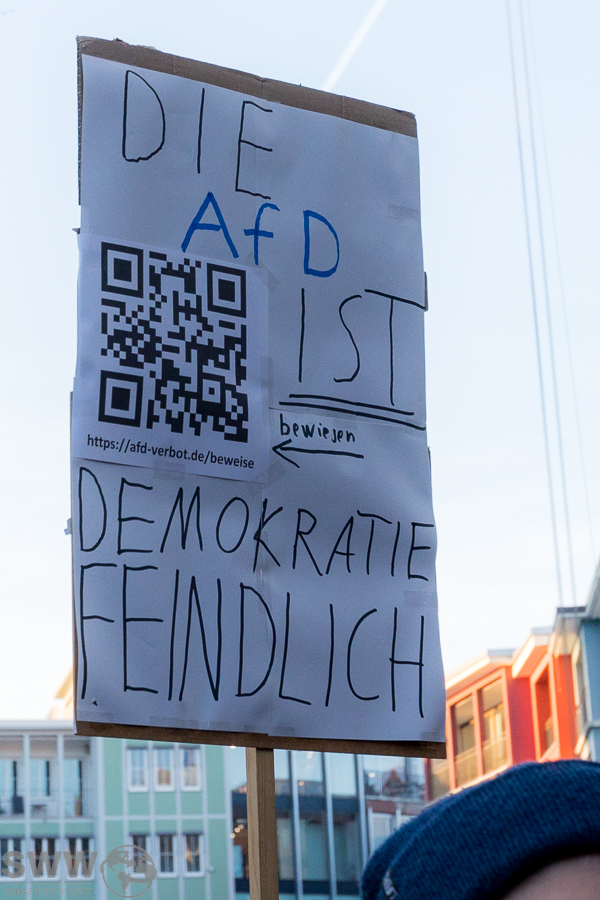 DIE
AfD
IST
https://afd-verbot.de/beweise
bewiesen
DEMOKRATIE
FEINDLICH
SWW